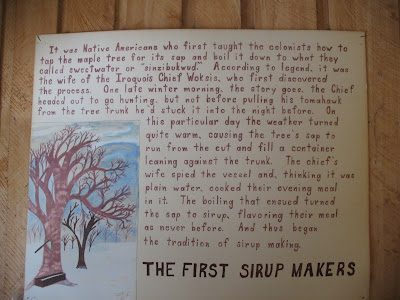 It was Native Americans who first taught the colonists how to
tap the maple tree for its sap and boil it down to what they
called sweetwater or "sinzibukwud." According to legend, it was
the wife of the Iroquois Chief Woksis, who first discovered
the process. One late winter morning, the story goes, the Chief
headed out to go hunting, but not before pulling his tomahawk
from the tree trunk he'd stuck it into the night before. On
this particular day the weather turned
quite warm, causing the tree's sap to
run from the cut and fill a container
leaning against the trunk. The chief's
wife spied the vessel and, thinking it was
plain water, cooked their evening meal
in it. The boiling that ensued turned
the sap to sirup, flavoring their meal
as never before. And thus began
the tradition of sirup making.
THE FIRST SIRUP MAKERS